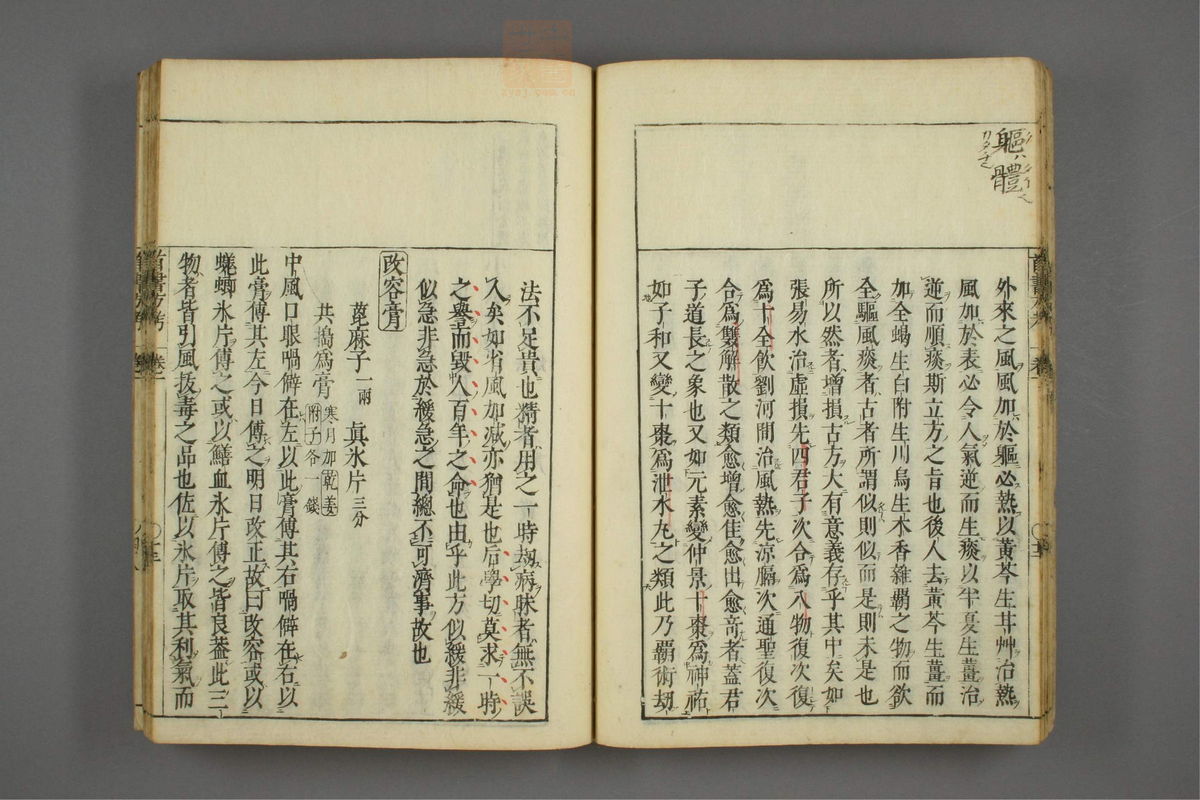 軀體
外來之風風加於軀必熱以黃芩生甘艸治熱
風加於表必令人氣逆而生痰以半夏生薑治
逆而順痰斯立方之旨也後人去黃芩生薑而
加全蝎生白附生川烏生木香雜霸之物而欲
全驅風痰者古者所謂似則似而是則未是也
所以然者增損古方大有意義存乎其中矣如
張易水治虛損先四君子次合爲八物復次復
爲十全飲劉河間治風熱先凉膈次通聖復次
合爲雙解散之類愈增愈佳愈出愈奇者蓋君
子道長之象也又如元素變仲景十棗爲神祐
如子和又變十棗爲泄水丸之類此乃霸術刼
法不足貴也精者用之一時刼病昧者無不誤
入矣如省風加减亦猶是也后學切莫求一時
之譽而毀人百年之命也由乎此方似緩非緩
似急非急於緩急之間總不可濟事故也
改容膏
蓖麻子一兩 眞氷片三分
共搗爲膏寒月加乾姜附子各一錢
中風口眼喎僻在左以此膏傅其右喎僻在右以
此膏傅其左今日傅之明日改正故曰改容或以
蜣蜋氷片傅之或以鱔血氷片傅之皆良葢此三
物者皆引風拔毒之品也佐以氷片取其利氣而